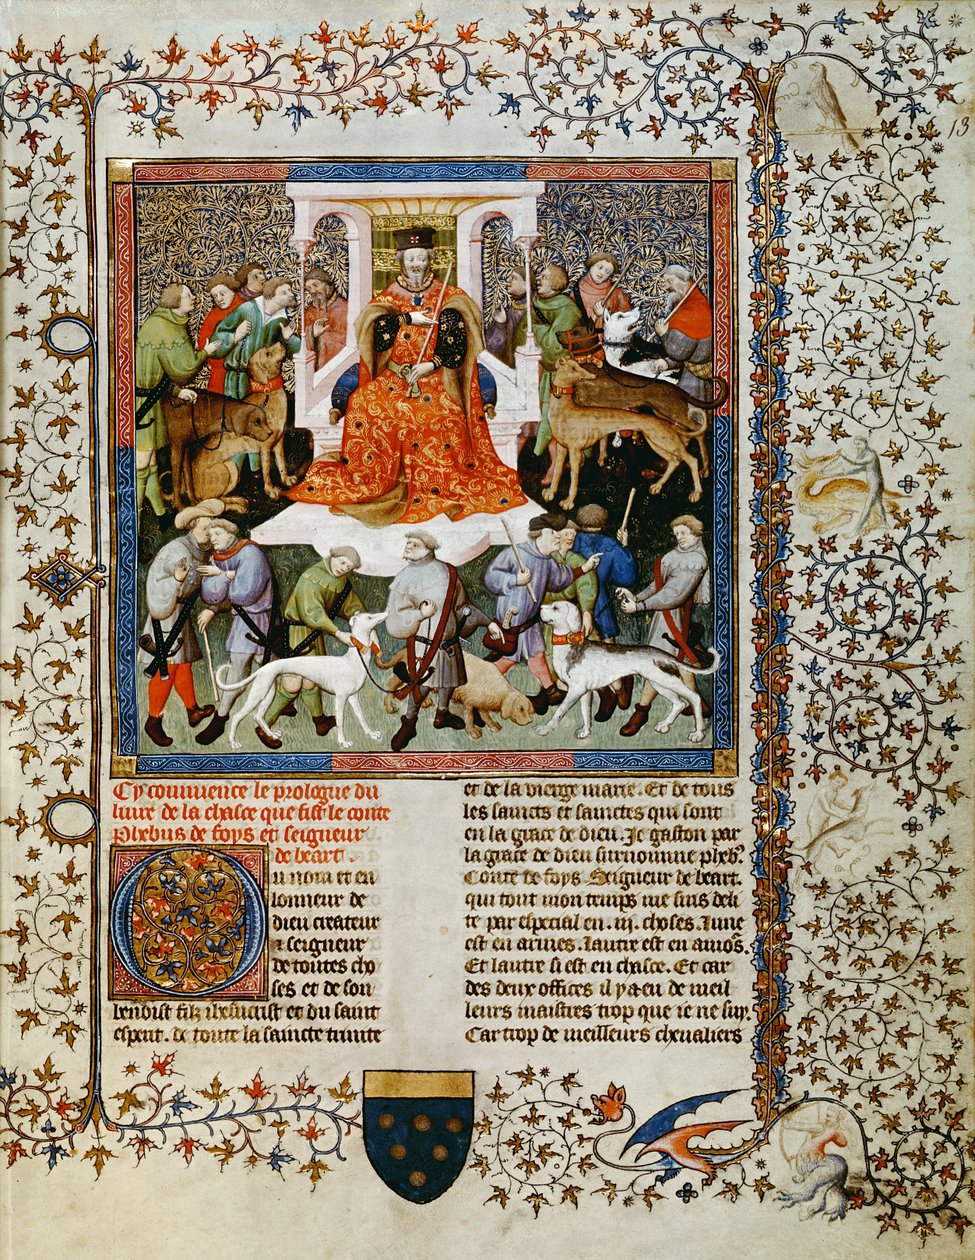 13
Cy commence le prologue du
liure de la chasse que fist le conte
Phebus de foys et seigneur
de beart
Ou nom et en
lonneur de
dieu createur
& seigneur
de toutes cho
ses et de son
benoist filz ihesucrist et du saint
esperit. de toute la saincte trinite
et de la vierge marie. Et de tous
les saincts et sainctes qui sont
en la grace de dieu. Je gaston par
la grace de dieu surnomme pheb9
Conte de foys. Seigneur de beart.
qui tout mon temps me suis deli
te par especial en .iij. choses. Lune
est en armes. lautre est en amors.
Et lautre si est en chasce. Et car
des deux offices il y a eu de meil
leurs maistres trop que ie ne suy.
Car trop de meilleurs cheualiers